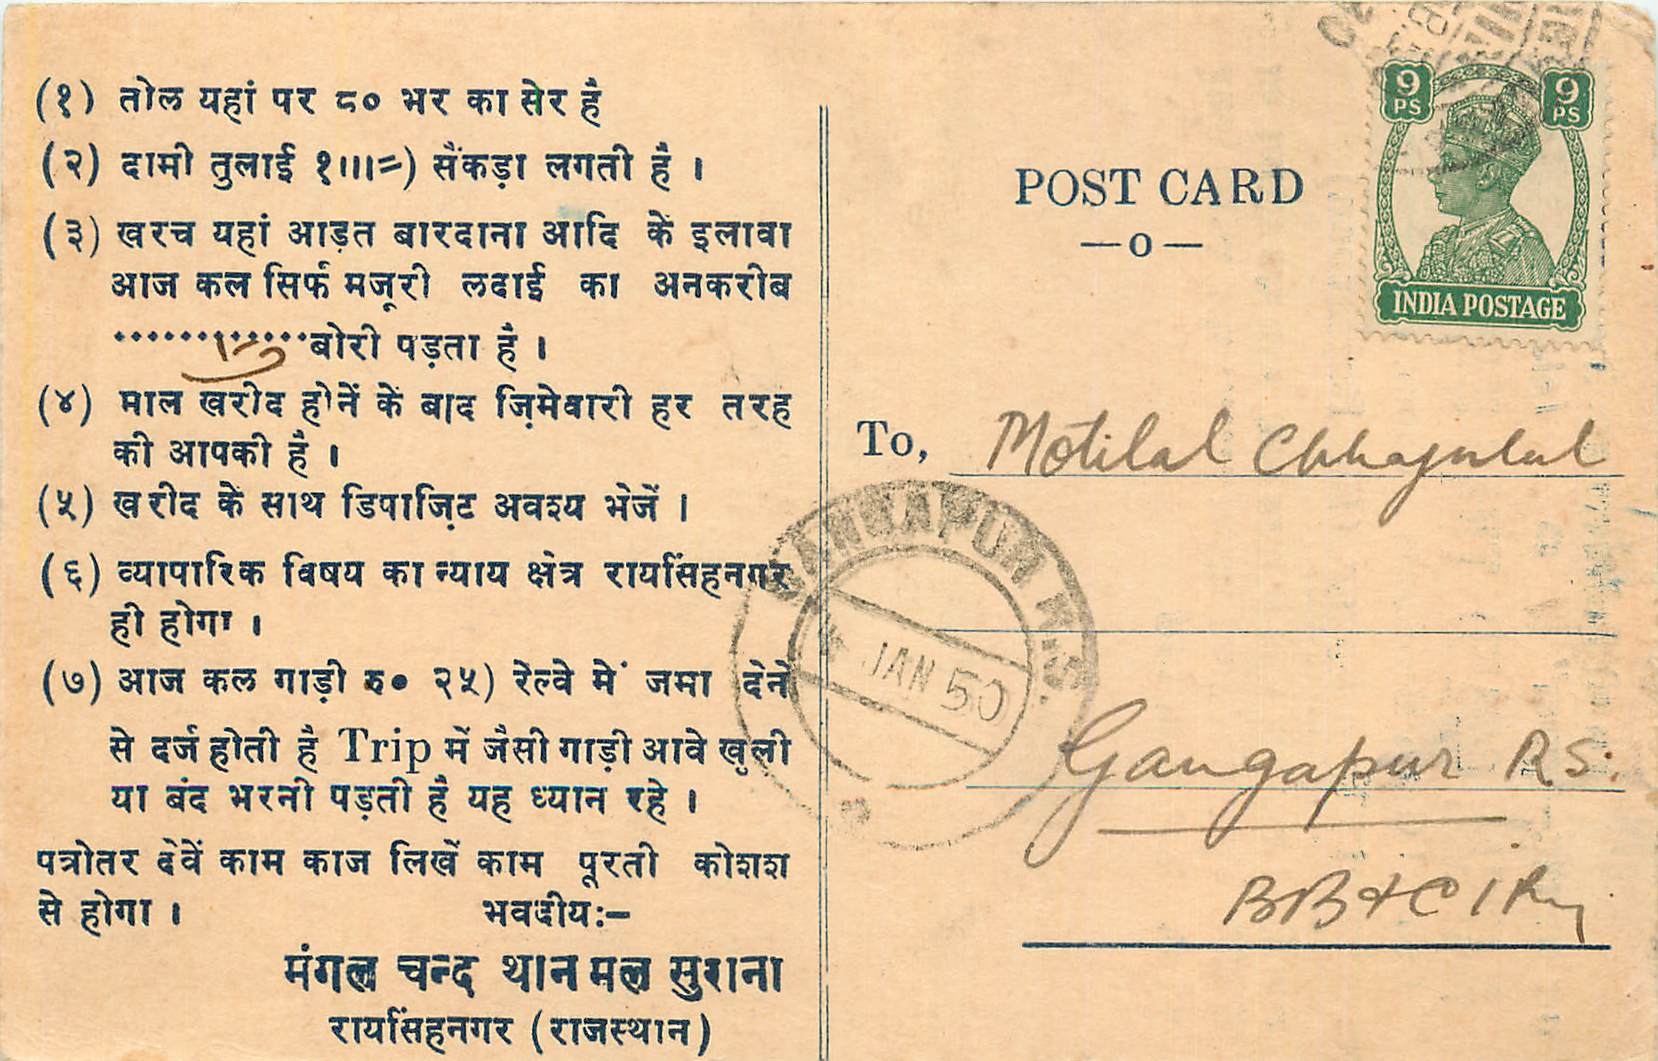 (१) तोल यहां पर ८० भर का सेर है
(२) दामी तुलाई १॥।=) सैंकड़ा लगती है ।
(३) खरच यहां आड़त बारदाना आदि के इलावा
आज कल सिर्फ मजूरी लदाई का अनकरीब
बोरी पड़ता है ।
(४) माल खरीद होनें के बाद ज़िमेवारी हर तरह
की आपकी है ।
(५) खरीद के साथ डिपाज़िट अवश्य भेजें ।
(६) व्यापारिक विषय का न्याय क्षेत्र रायसिंहनगर
ही होगा ।
(७) आज कल गाड़ी रु० २५) रेल्वे में जमा देने
से दर्ज होती है Trip में जैसी गाड़ी आवे खुली
या बंद भरनी पड़ती है यह ध्यान रहे ।
पत्रोतर देवें काम काज लिखें काम पूरती कोशश
से होगा ।
भवदीय:-
मंगल चन्द थान मल सुराना
रायसिंहनगर (राजस्थान)
POST CARD
—o—
9 PS 9 PS
INDIA POSTAGE
To, Motilal
GANGAPUR R.S.
JAN 50
Gangapur R.S.
BB & C I Ry